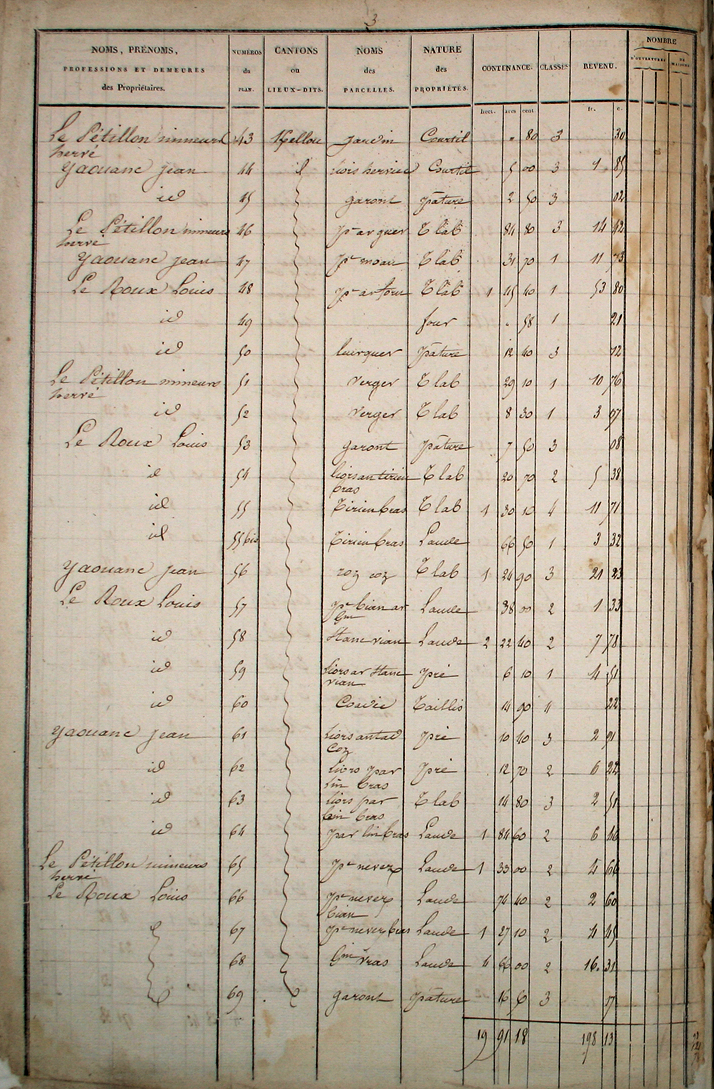 3
NOMS, PRÉNOMS, PROFESSIONS ET DEMEURES des Propriétaires. NUMÉROS du PLAN. CANTONS ou LIEUX-DITS. NOMS des PARCELLES. NATURE des PROPRIÉTÉS. CONTENANCE. CLASSES REVENU. NOMBRE D'OUVERTURES DE MAISONS
hect. ares cent. fr. c.
Le Pétillon mineurs hervé 43 Kellou jardin Courtil " 80 3 30
Yaouanc jean 44 id Courtil 5 00 3 1 85
id 45 garont pâture 2 50 3 02
Le Pétillon mineurs hervé 46 pr ar guer T lab 84 80 3 14 42
Yaouanc jean 47 pr moan T lab 31 70 1 11 73
Le Roux Louis 48 pr ar forn T lab 1 45 40 1 53 80
id 49 four . 58 1 21
id 50 leurguer pâture 12 40 3 12
Le Pétillon mineurs hervé 51 verger T lab 29 10 1 10 76
id 52 verger T lab 8 30 1 3 07
Le Roux Louis 53 garont pâture 7 50 3 08
id 54 liors an tirien bras T lab 20 70 2 5 38
id 55 Tirien bras T lab 1 30 10 4 11 71
id 55 bis Tirien bras Lande 66 50 1 3 32
Yaouanc jean 56 roz coz T lab 1 24 90 3 21 23
Le Roux Louis 57 pr bian ar lin Lande 38 00 2 1 33
id 58 Stanc vian Lande 2 22 40 2 7 78
id 59 liors ar Stanc vian pré 6 10 1 4 51
id 60 Taillis 4 90 4 22
Yaouanc jean 61 coz pré 10 40 3 2 91
id 62 liors par lin bras pré 12 70 2 6 22
id 63 liors par lin bras T lab 14 80 3 2 51
id 64 par lin bras Lande 1 84 60 2 6 46
Le Pétillon mineurs hervé 65 pr nevez Lande 1 33 00 2 4 66
Le Roux Louis 66 pr nevez bian Lande 74 40 2 2 60
67 pr nevez bras Lande 1 27 10 2 4 45
68 vras Lande 4 66 00 2 16.31
69 garont pâture 16 50 3 17
19 91 18 198 13